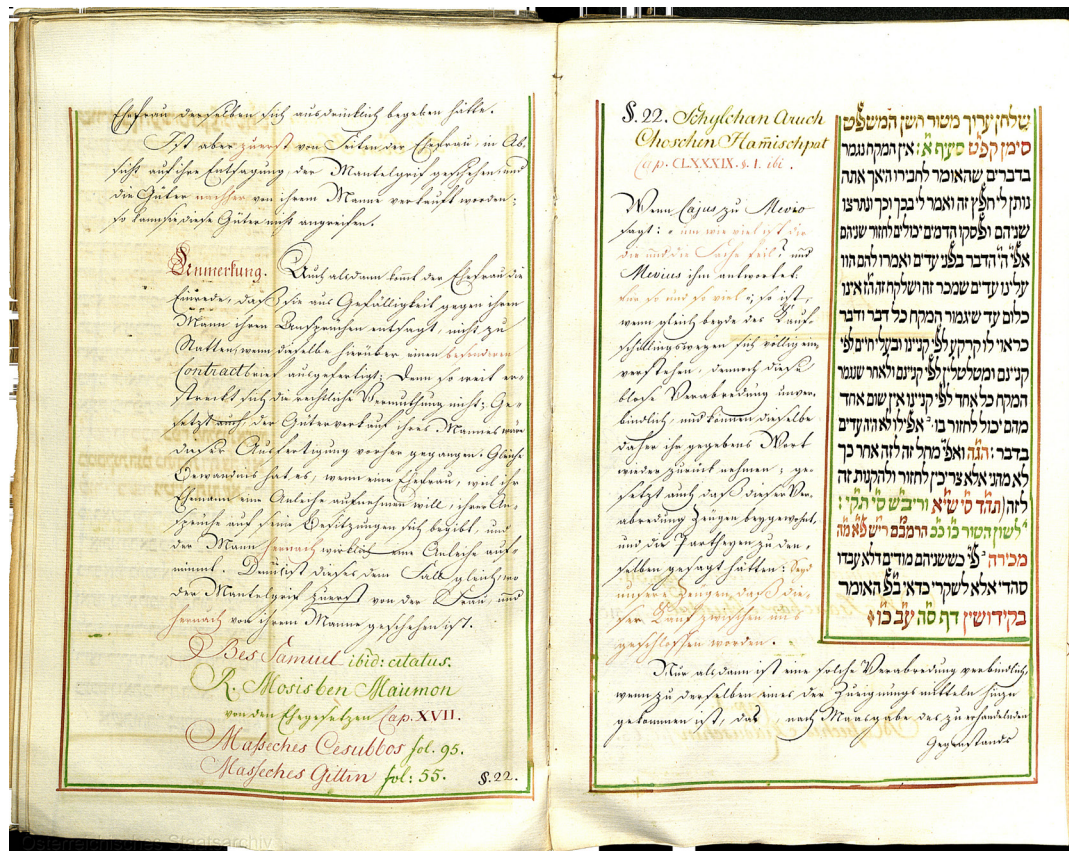 Ehefrau derselben sich ausdrücklich begeben hätte.
Ist aber zuerst von Seiten der Ehefrau, in Ab-
sicht auf ihre Entsagung, der Mantelgrif geschehen, und
die Güter nachher von ihrem Manne verkauft worden;
so kann sie diese Güter nicht angreifen.
Anmerkung. Auch alsdann kömt der Ehefrau die
Einrede, daß sie aus Gefälligkeit gegen ihren
Mann ihren Ansprüchen entsagt, nicht zu
Statten, wenn dieselbe hierüber einen besonderen
Contractbrief ausgefertigt; denn so weit er-
streckt sich die rechtliche Vermuthung nicht; Ge-
setzt auch, der Güterverkauf ihres Mannes wäre
dieser Ausfertigung vorher gegangen. Gleiche
Bewandnis hat es, wenn eine Ehefrau, weil ihr
Ehemann eine Anleihe aufnehmen will, ihrer An-
sprüche auf seine Besitzungen sich begibt, und
der Mann hernach wirklich eine Anleihe auf-
nimmt. Denn ist dieses dem Falle gleich, wo
der Mantelgrif zuerst von der Frau, und
hernach von ihrem Manne geschehen ist.
Bes Samuel ibid: citatus.
R. Mosis ben Maumon
von den Ehegesetzen Cap. XVII.
Masseches Cesubbos fol. 95.
Masseches Gittin fol: 55.
§. 22.
§. 22. Schylchan Aruch
Choschen Ham̄ischpat
Cap. CLXXXIX. §. 1. ibi.
Wenn Cajus zu Mevio
sagt: um wie viel ist dir
die und die Sache feil? und
Mevius ihm antwortet:
für so und so viel; so ist,
wenn gleich beyde des Kauf-
schillingswegen sich völlig ein-
verstehen, dennoch diese
blose Verabredung unver-
bindlich; und können dieselbe
daher ihr gegebenes Wort
wieder zurück nehmen; ge-
setzt auch daß dieser Ver-
abredung Zeugen beygewohnt,
und die Partheyen zu den-
selben gesagt hätten: Seyd
unsere Zeugen, daß die-
ser Kauf zwischen uns
geschlossen worden.
שלחן ערוך מטור חשן המשפט
סימן קפ״ט סעיף א׳: אין המקח נגמר
בדברים שהאומר לחבירו היאך אתה
נותן לי חפץ זה ואמר לי בכך וכך ונתרצו
שניהם ופסקו הדמים יכולים לחזור שניהם
אפי׳ היה הדבר בפני עדים ואמרו להם הוו
עלינו עדים שמכר זה ושלקח זה ה״ז אינו
כלום עד שיגמור המקח כל דבר ודבר
כראוי לו קרקע לפי קנינו ובעלי חיים לפי
קנינם ומטלטלין לפי קנינם ולאחר שנגמר
המקח כל אחד לפי קנינו אין שום אחד
מהם יכול לחזור בו: אפילו לא היה עדים
בדבר: הגה ואפי׳ מחל זה לזה אחר כך
לא מהני אלא צריכין לחזור ולהקנות זה
לזה (ת״ה סי׳ שי״א וריב״ש סי׳ ת״ק):
לשון הטור כ״כ הרמב״ם ריש פ״א מה׳
מכירה פי׳ כששניהם מודים דלא עבדו
סהדי אלא לשקרי כדאי׳ בפ׳ האומר
בקידושין דף ס״ה ע״ב כו׳
Nur alsdann ist eine solche Verabredung verbindlich,
wenn zu derselben eines der Zueignungsmitteln hinzu
gekommen ist, das nach Maasgabe des zu erhandelnden
Gegenstands
Österreichisches Staatsarchiv